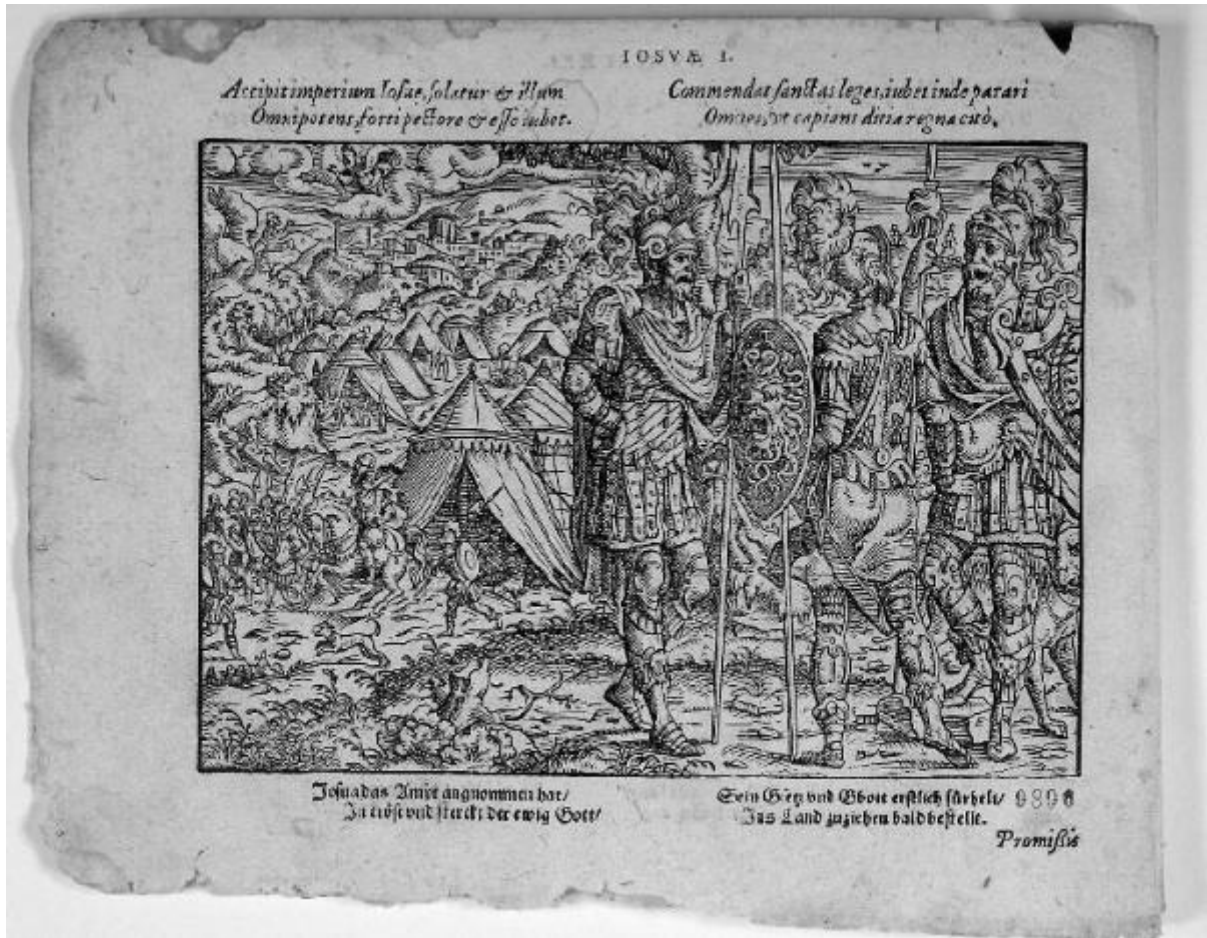 IOSVÆ I.
Accipit imperium Iosue, solatur & illum
Omnipotens, forti pectore & esse iubet.
Commendat sanctas leges, iubet inde parari
Omnes, vt capiant ditia regna citò.
Josua das Ampt angnommen hat/
In tröst vnd sterckt der ewig Gott/
Sein Gsetz vnd Gbott erstlich fürhelt/
Ins Land zuziehen bald bestelt.
9898
Promißis